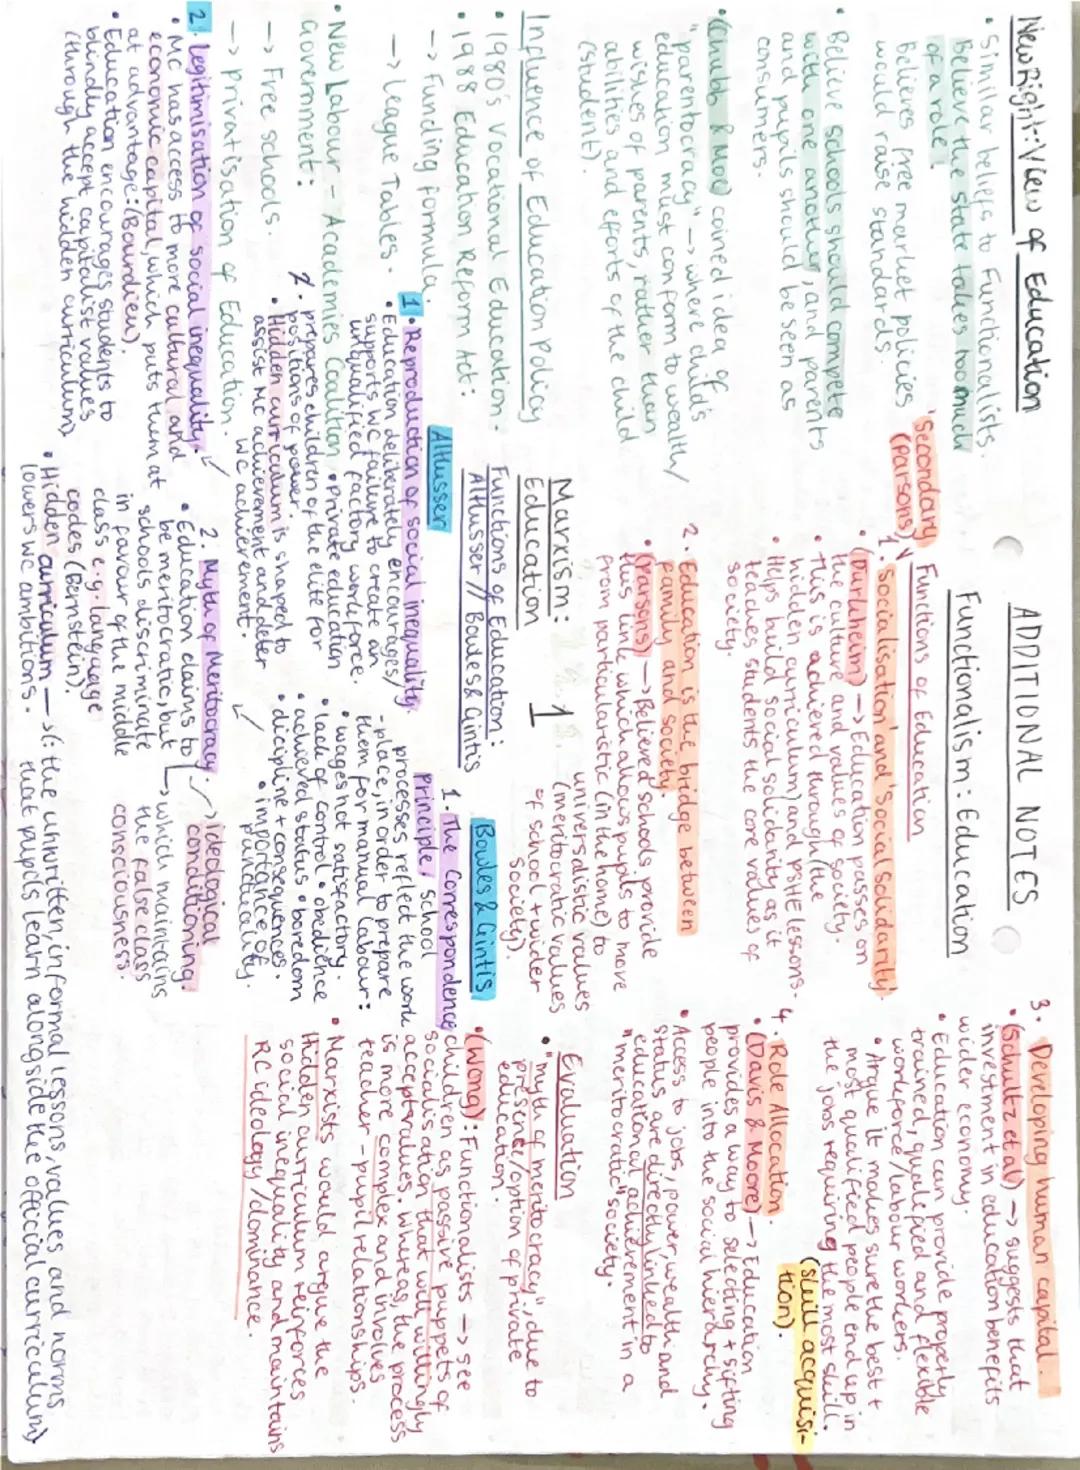 ADDITIONAL NOTES
Functionalism: Education
Functions of Education
'Secondary
(Parsons)
1. 'socialisation' and 'social solidarity'.
• (Durkheim) —> Education passes on
the culture and values of society.
• this is achieved through (the
hidden curriculum) and PSHE lessons.
• Helps build social solidarity as it
teaches students the core values of
society.
2. Education is the bridge between
family and society.
• (Parsons) —> Believed schools provide
this link which allows pupils to move
from particularistic (in the home) to
universalistic values
(meritocratic values
of school + wider
society).
3. Developing human capital.
• (Schultz et al) —> suggests that
investment in education benefits
wider economy.
• Education can provide properly
trained, qualified and flexible
workforce/labour workers.
• Argue it makes sure the best +
most qualified people end up in
the jobs requiring the most skill.
(skill acquisi-
tion).
4. Role Allocation.
• (Davis & Moore) —> Education
provides a way to selecting + sifting
people into the social hierarchy.
• Access to jobs, power, wealth and
status are directly linked to
educational achievement in a
"meritocratic" society.
Evaluation
• "myth of meritocracy", due to
presence/option of private
education.
• (Wong): Functionalists —> see
children as passive puppets of
socialisation that will willingly
accept values. Whereas, the process
is more complex and involves
teacher-pupil relationships.
• Marxists would argue the
Hidden curriculum reinforces
social inequality and maintains
RC ideology/dominance.
New Right: View of Education
• Similar beliefs to Functionalists.
• Believe the state takes too much
of a role.
Believes free market policies
would raise standards.
• Believe schools should compete
with one another, and parents
and pupils should be seen as
consumers.
• (Chubb & Moe) coined idea of
"parentocracy" —> where child's
education must conform to wealth/
wishes of parents, rather than
abilities and efforts of the child
(student).
Influence of Education Policy
• 1980's Vocational Education.
• 1988 Education Reform Act:
—> Funding formula.
—> League Tables.
• New Labour - Academies Coalition
Government:
—> Free schools.
—> privatisation of Education.
Marxism:
Education
1
Functions of Education:
Althusser // Bowles & Gintis
Althusser
1. • Reproduction of social inequality.
• Education deliberately encourages/
supports WC failure to create an
unqualified factory workforce.
• Private education
prepares children of the elite for
positions of power.
2.
• Hidden curriculum is shaped to
assist MC achievement and deter
WC achievement.
2. Legitimisation of social inequality.
• MC has access to more cultural and
economic capital, which puts them at
at advantage: (Bourdieu).
• Education encourages students to
blindly accept capitalist values
(through the hidden curriculum)
Bowles & Gintis
1. The Correspondence
principle, school
processes reflect the work
-place, in order to prepare
them for manual labour:
• wages not satisfactory.
• lack of control • obedience
• achieved status • boredom
• dicipline + consequences.
• importance of
punctuality.
2. Myth of Meritocracy. —> ideological
conditioning.
• Education claims to
be meritocratic, but
schools discriminate
in favour of the middle
class e.g. language
codes (Bernstein).
—> which maintains
the false class
consciousness
• Hidden curriculum —> (: the unwritten, informal lessons, values, and norms
lowers WC ambitions. that pupils learn alongside the official curriculum)